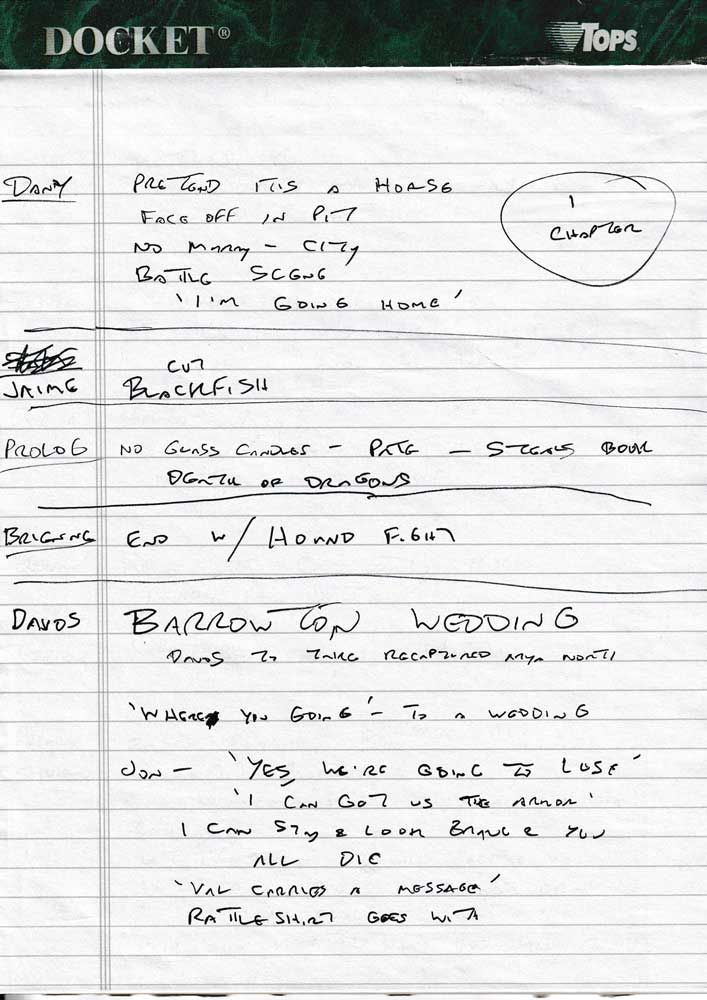 DOCKET® TOPS
DANY PRETEND ITIS A HORSE
FACE OFF IN PIT
1 CHAPTER
NO MARRY - CITY
BATTLE SCENE
'I'M GOING HOME'
CUT
JAIME BLACKFISH
PROLOG NO GLASS CANDLES - PATE - STEALS BOOK
DEATH OF DRAGONS
BRIENNE END W/ HOUND FIGHT
DAVOS BARROWTON WEDDING
DAVOS TO TAKE RECAPTURED ARYA NORTH
'WHERE YOU GOING' - TO A WEDDING
JON - 'YES, WE'RE GOING TO LOSE'
'I CAN GET US THE ARMOR'
I CAN STAY & LOOK BRAVE & YOU
ALL DIE
'VAL CARRIES A MESSAGE'
RATTLESHIRT GOES WITH